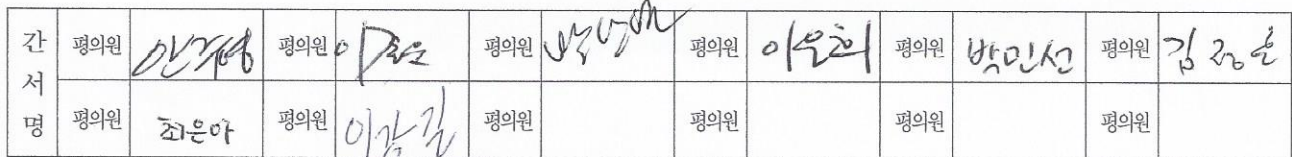 간서명 평의원 평의원 평의원 평의원 이운희 평의원 박민선 평의원
평의원 최은아 평의원 이강길 평의원 평의원 평의원 평의원